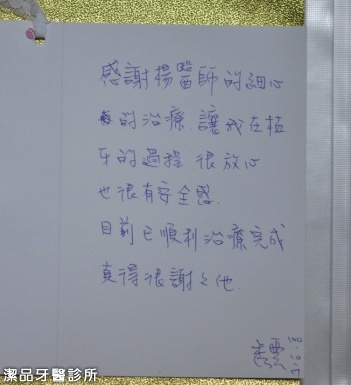 感謝楊醫師的細心
的治療.讓我在植
牙的過程很放心
也很有安全感.
目前已順利治療完成
真得很謝謝他.
潔品牙醫診所